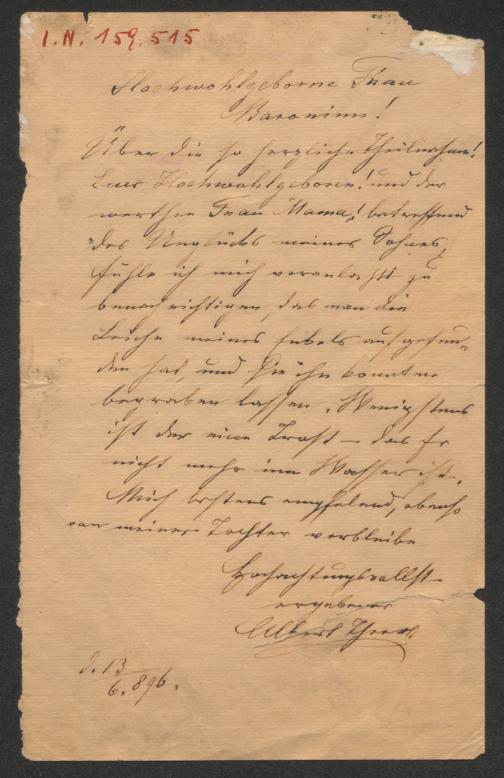 I.N. 159.515
Hochwohlgeborne Frau
Baroninn!
Über die so herzliche Theilnahme!
Euer Hochwohlgeboren! und der
werthen Frau Mama! betreffend
des Unglücks meines Sohnes,
fühle ich mich veranlasst zu
benachrichtigen, das man die
Leiche meines aufgefun-
den hat, und Sie ihn konnten
begraben lassen. Wenigstens
ist der eine Trost – das Er
nicht mehr im Wasser ist.
Mich bestens empfelend, ebenso
von meiner Tochter verbleibe
Hochachtungsvollst
ergebener
Albert
d. 13
6. 896.